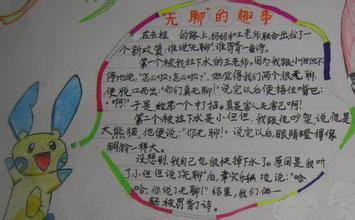 "无聊"的趣事
在去桂 的路上,妈妈和王老师联合出台了一
个新政策:谁说"无聊",谁罚背一首诗。
第一个被我拉下水的王老师。因为我跟小但但不
停地说:"怎么啦?怎么啦?"她觉得我们两个很无聊,
便脱口而出:"你们真无聊!"说完以后便捂住嘴巴:
"啊!"于是她第一个打招
第二个被拉下水是小但但。我跟他吵架,说他是
大熊猫,他便说:"你无聊!"说完以后,眼睛瞪得像
铜铃一样大。
没想到,我自己也很快掉下水了。原因是我听
了小但但说"无聊"后,幸灾乐祸地说:"哈
哈,你说了无聊!"结果,我们俩一
起被罚背了诗。